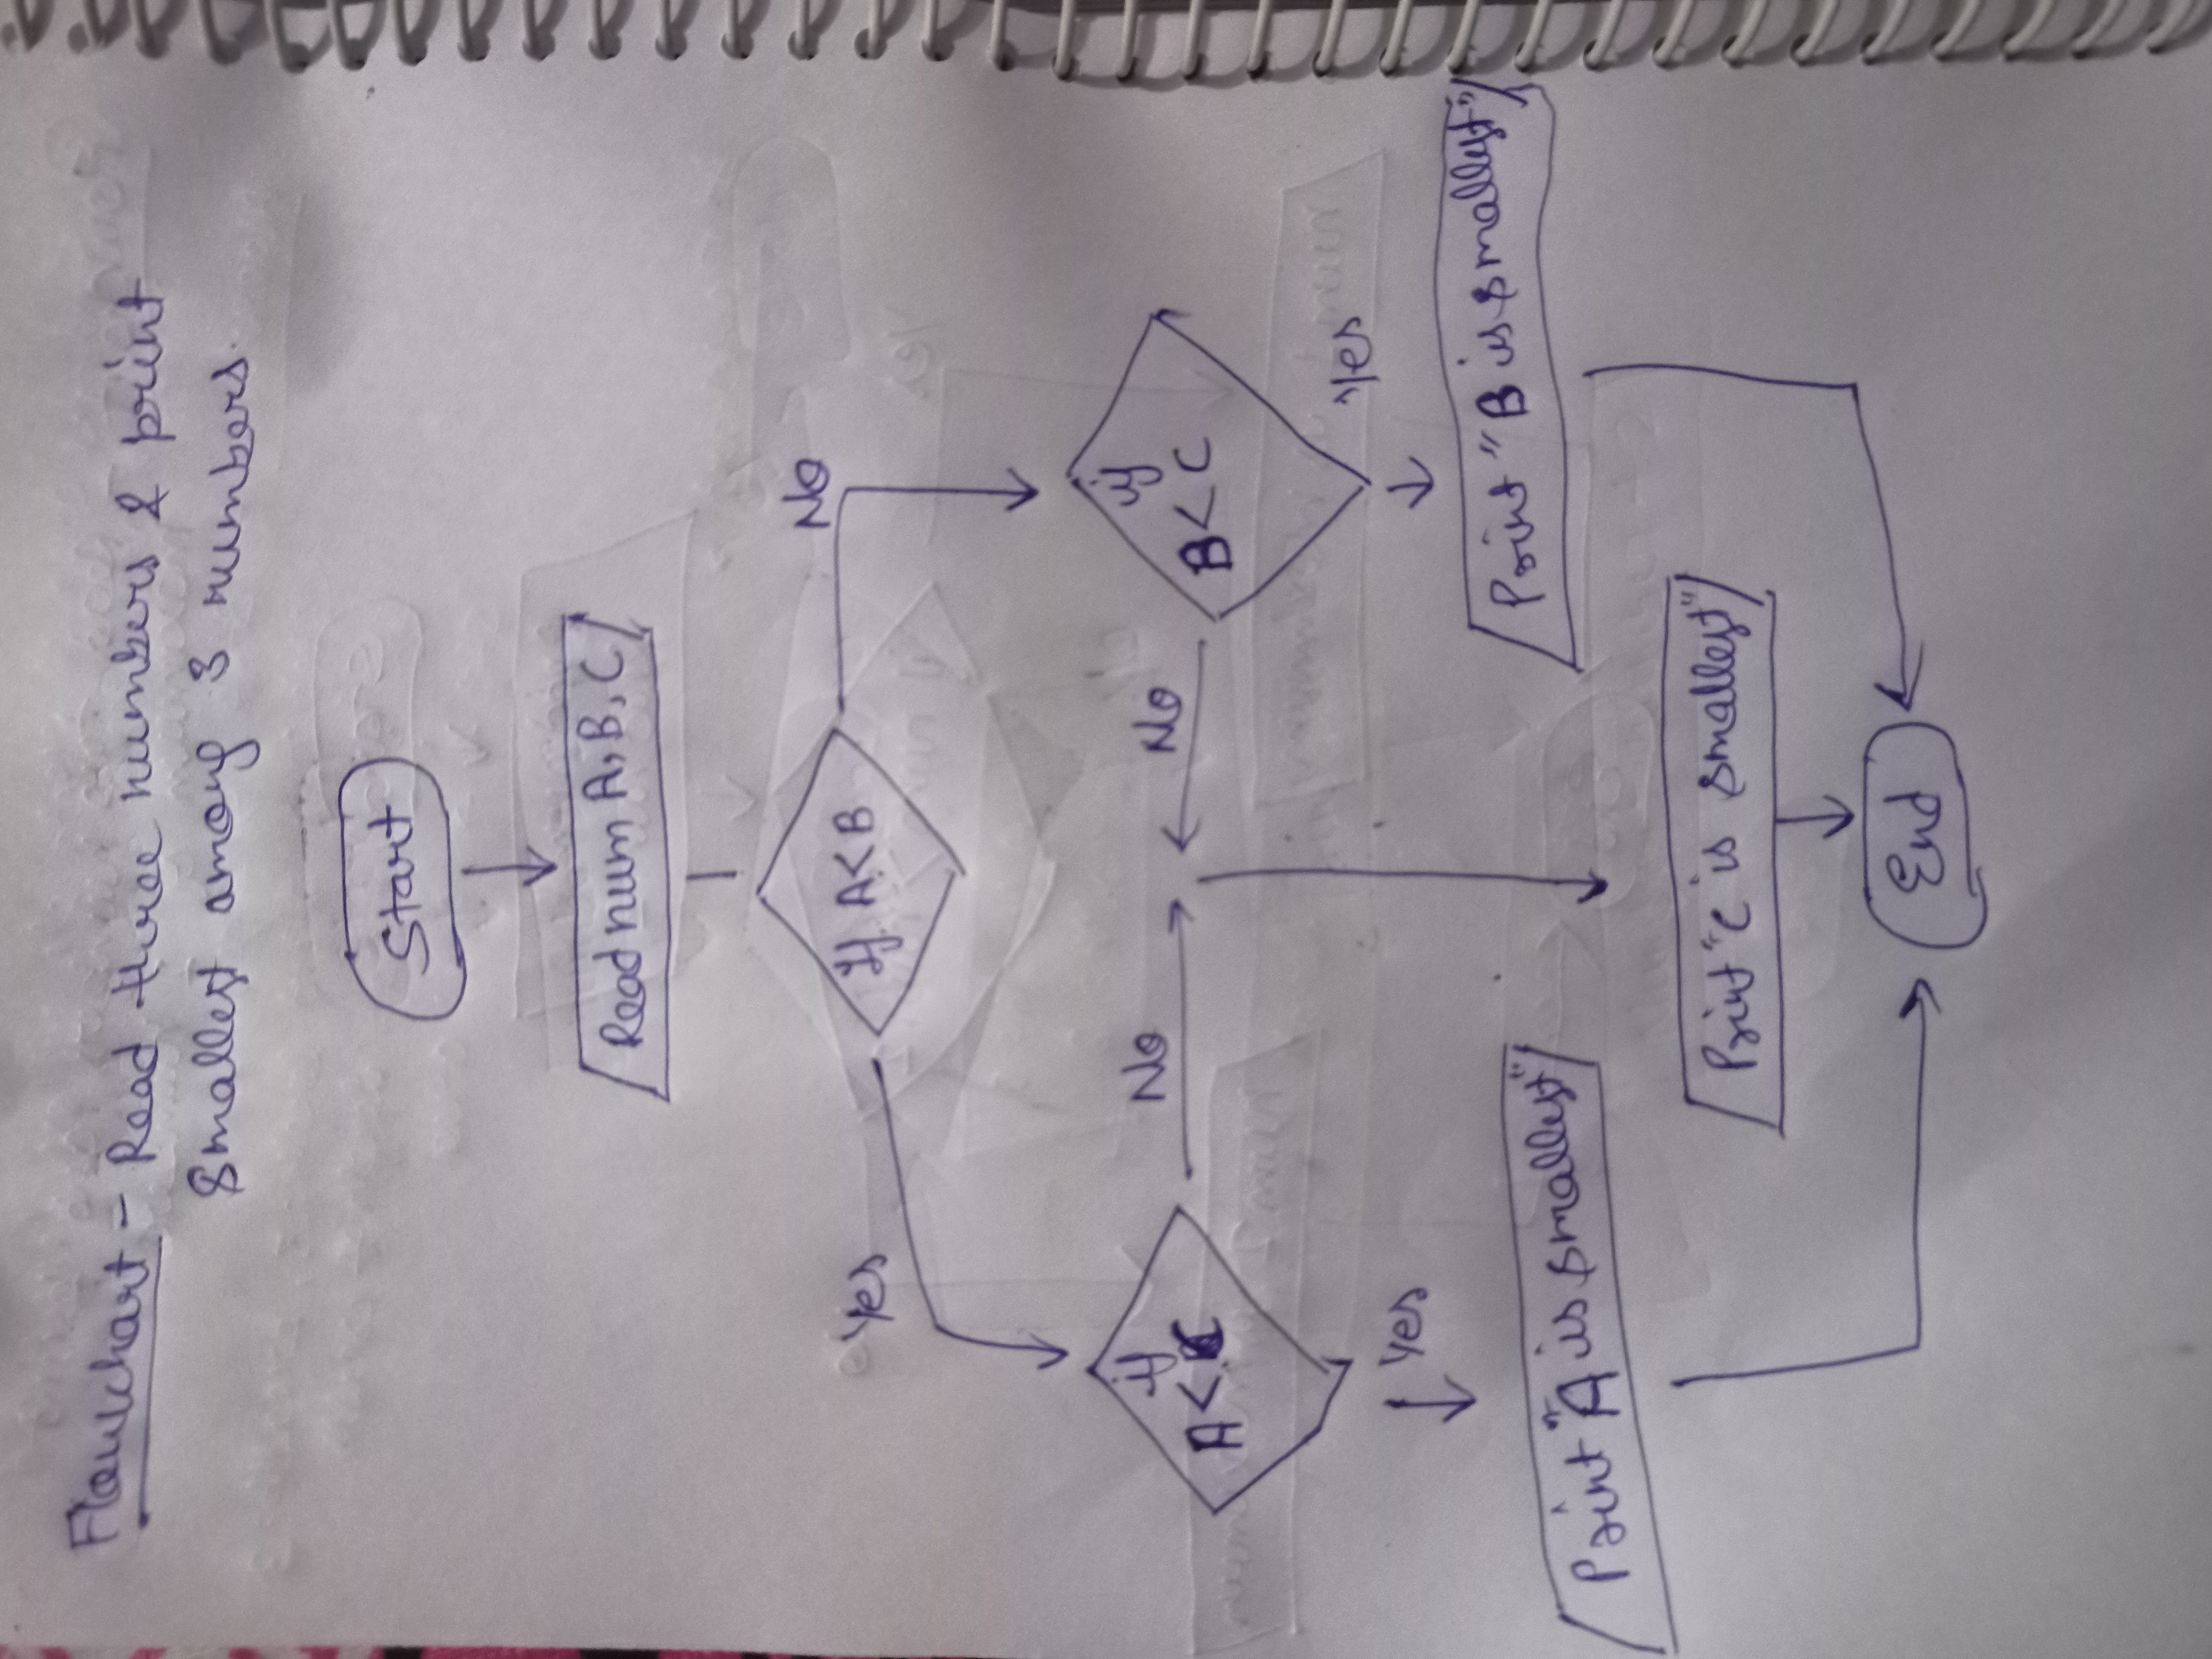 Flowchart - Read three numbers & print
smallest among 3 numbers.
Start
Read num A, B, C
If A < B
Yes
No
if
A < C
No
No
if
B < C
Yes
Yes
Print "A is smallest"
Print "B is smallest"
Print "C is smallest"
End